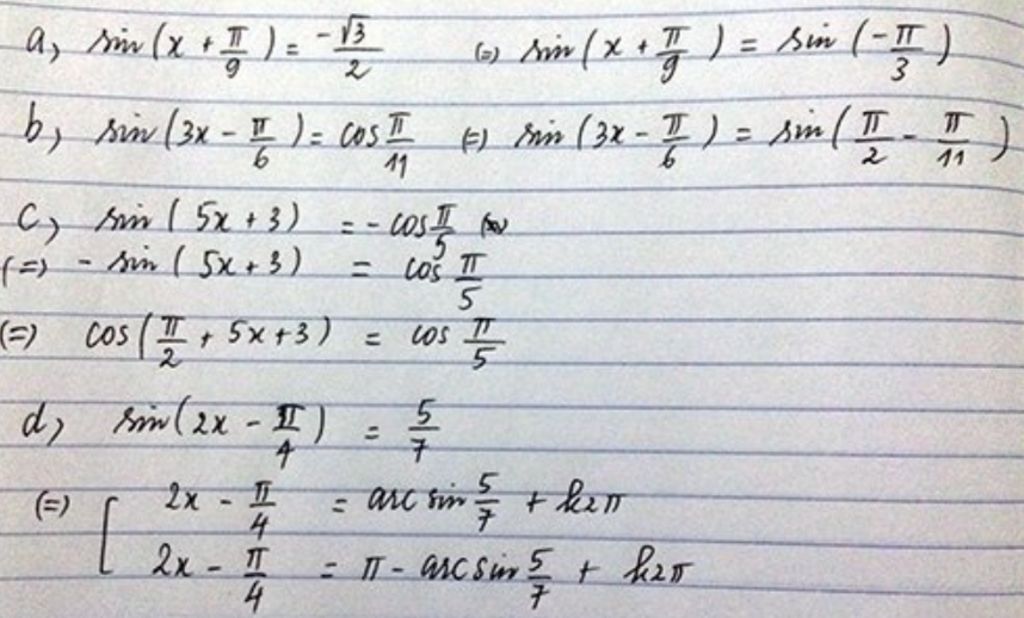 a, sin(x + π/9) = -√3/2 (=) sin(x + π/9) = sin(-π/3)
b, sin(3x - π/6) = cos π/11 (=) sin(3x - π/6) = sin(π/2 - π/11)
c, sin(5x + 3) = - cos π/5
(=) - sin(5x + 3) = cos π/5
(=) cos(π/2 + 5x + 3) = cos π/5
d, sin(2x - π/4) = 5/7
(=) [ 2x - π/4 = arc sin 5/7 + k2π
2x - π/4 = π - arcsin 5/7 + k2π